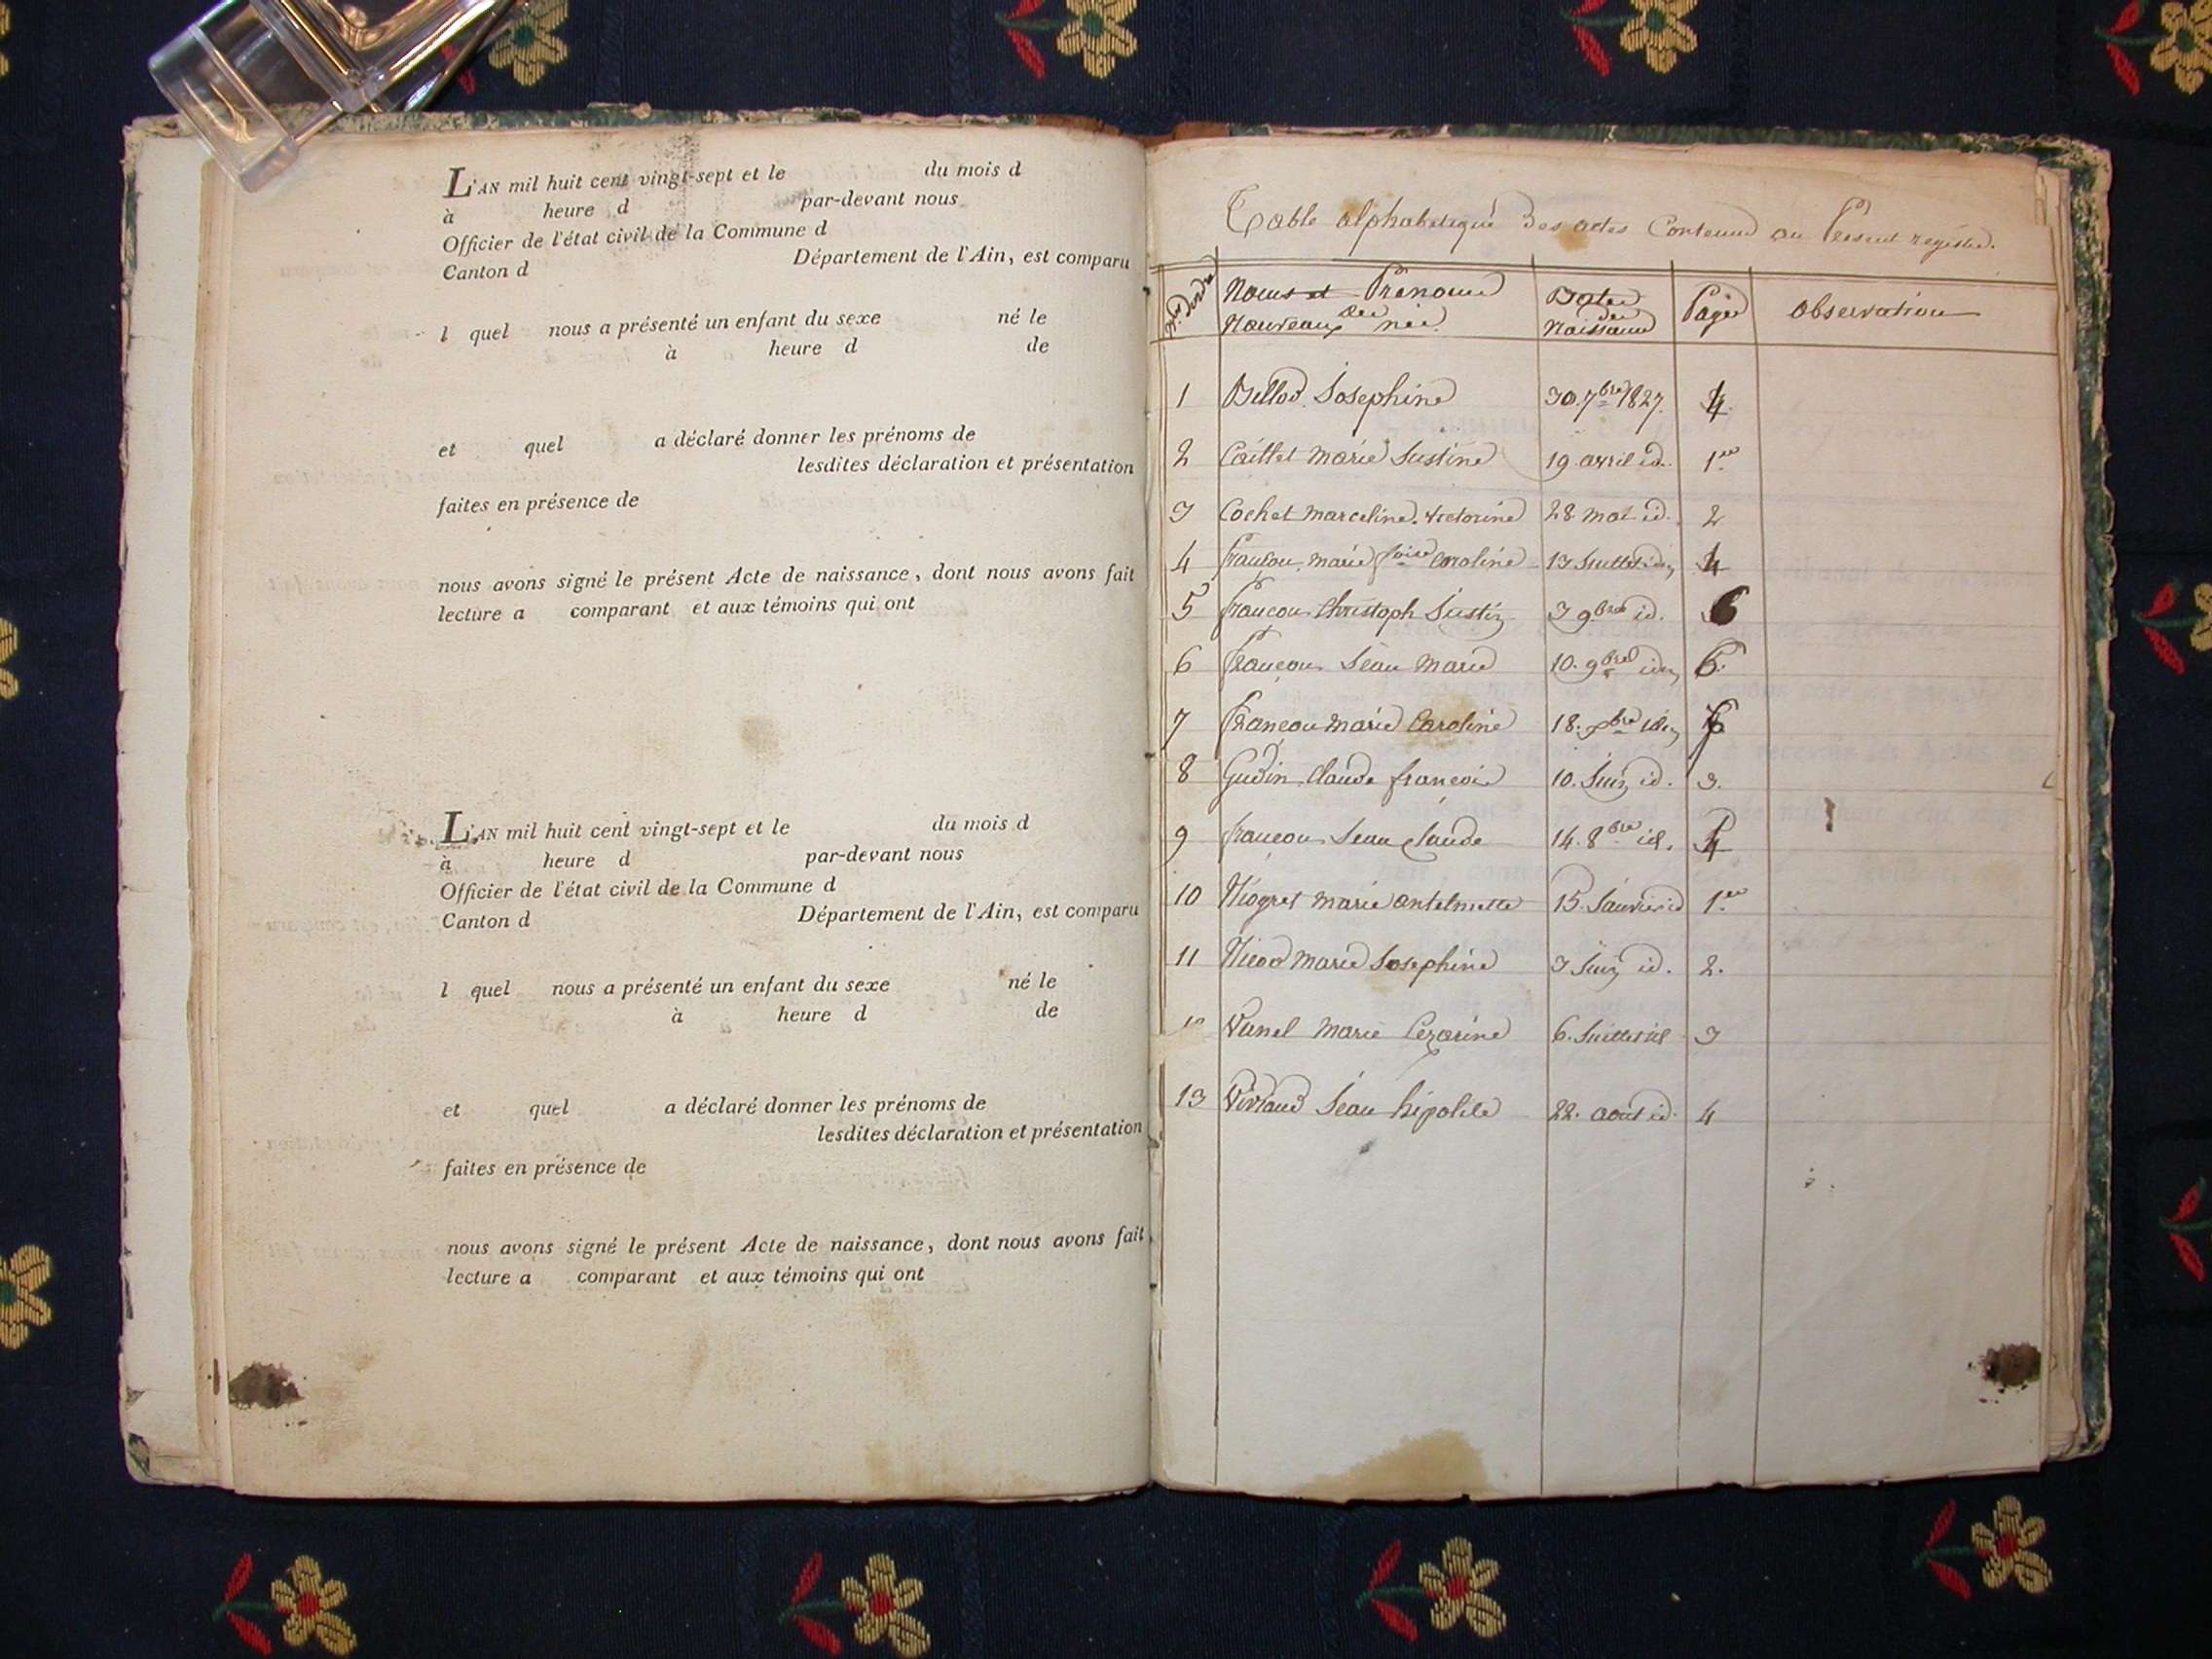 L'AN mil huit cent vingt-sept et le du mois d
à heure d par-devant nous
Officier de l'état civil de la Commune d
Canton d Département de l'Ain, est comparu
l quel nous a présenté un enfant du sexe né le
à heure d de
et quel a déclaré donner les prénoms de
lesdites déclaration et présentation
faites en présence de
nous avons signé le présent Acte de naissance, dont nous avons fait
lecture a comparant et aux témoins qui ont
L'AN mil huit cent vingt-sept et le du mois d
à heure d par-devant nous
Officier de l'état civil de la Commune d
Canton d Département de l'Ain, est comparu
l quel nous a présenté un enfant du sexe né le
à heure d de
et quel a déclaré donner les prénoms de
lesdites déclaration et présentation
faites en présence de
nous avons signé le présent Acte de naissance, dont nous avons fait
lecture a comparant et aux témoins qui ont
Table alphabetique des actes Contenus au Present registre.
Noms et Prenoms des Nouveaux née. Dates des Naissance Pages observation
1 Billod Josephine 30. 7bre 1827. 4
2 Caillet marie Justine 19 avril id. 1er
3 Cochet marceline victorine 28 mai id. 2
4 francon marie fçoise Caroline 13 Juillet id. 4
5 francon Christoph Justin 3 9bre id. 6
6 francon Jean Marie 10. 9bre id. 6.
7 francon marie Caroline 18.
8 Gudin Claude francois 10. Juin id. 3.
9 francon Jean Claude 14. 8bre id.
10 Niogret marie antelmette 15 Janvier id 1er
11 Nicod marie Josephine 3 Juin id. 2.
Vunel Marie Cezarine 6. Juillet id 3
13 Jean hipolite 22. aout id. 4